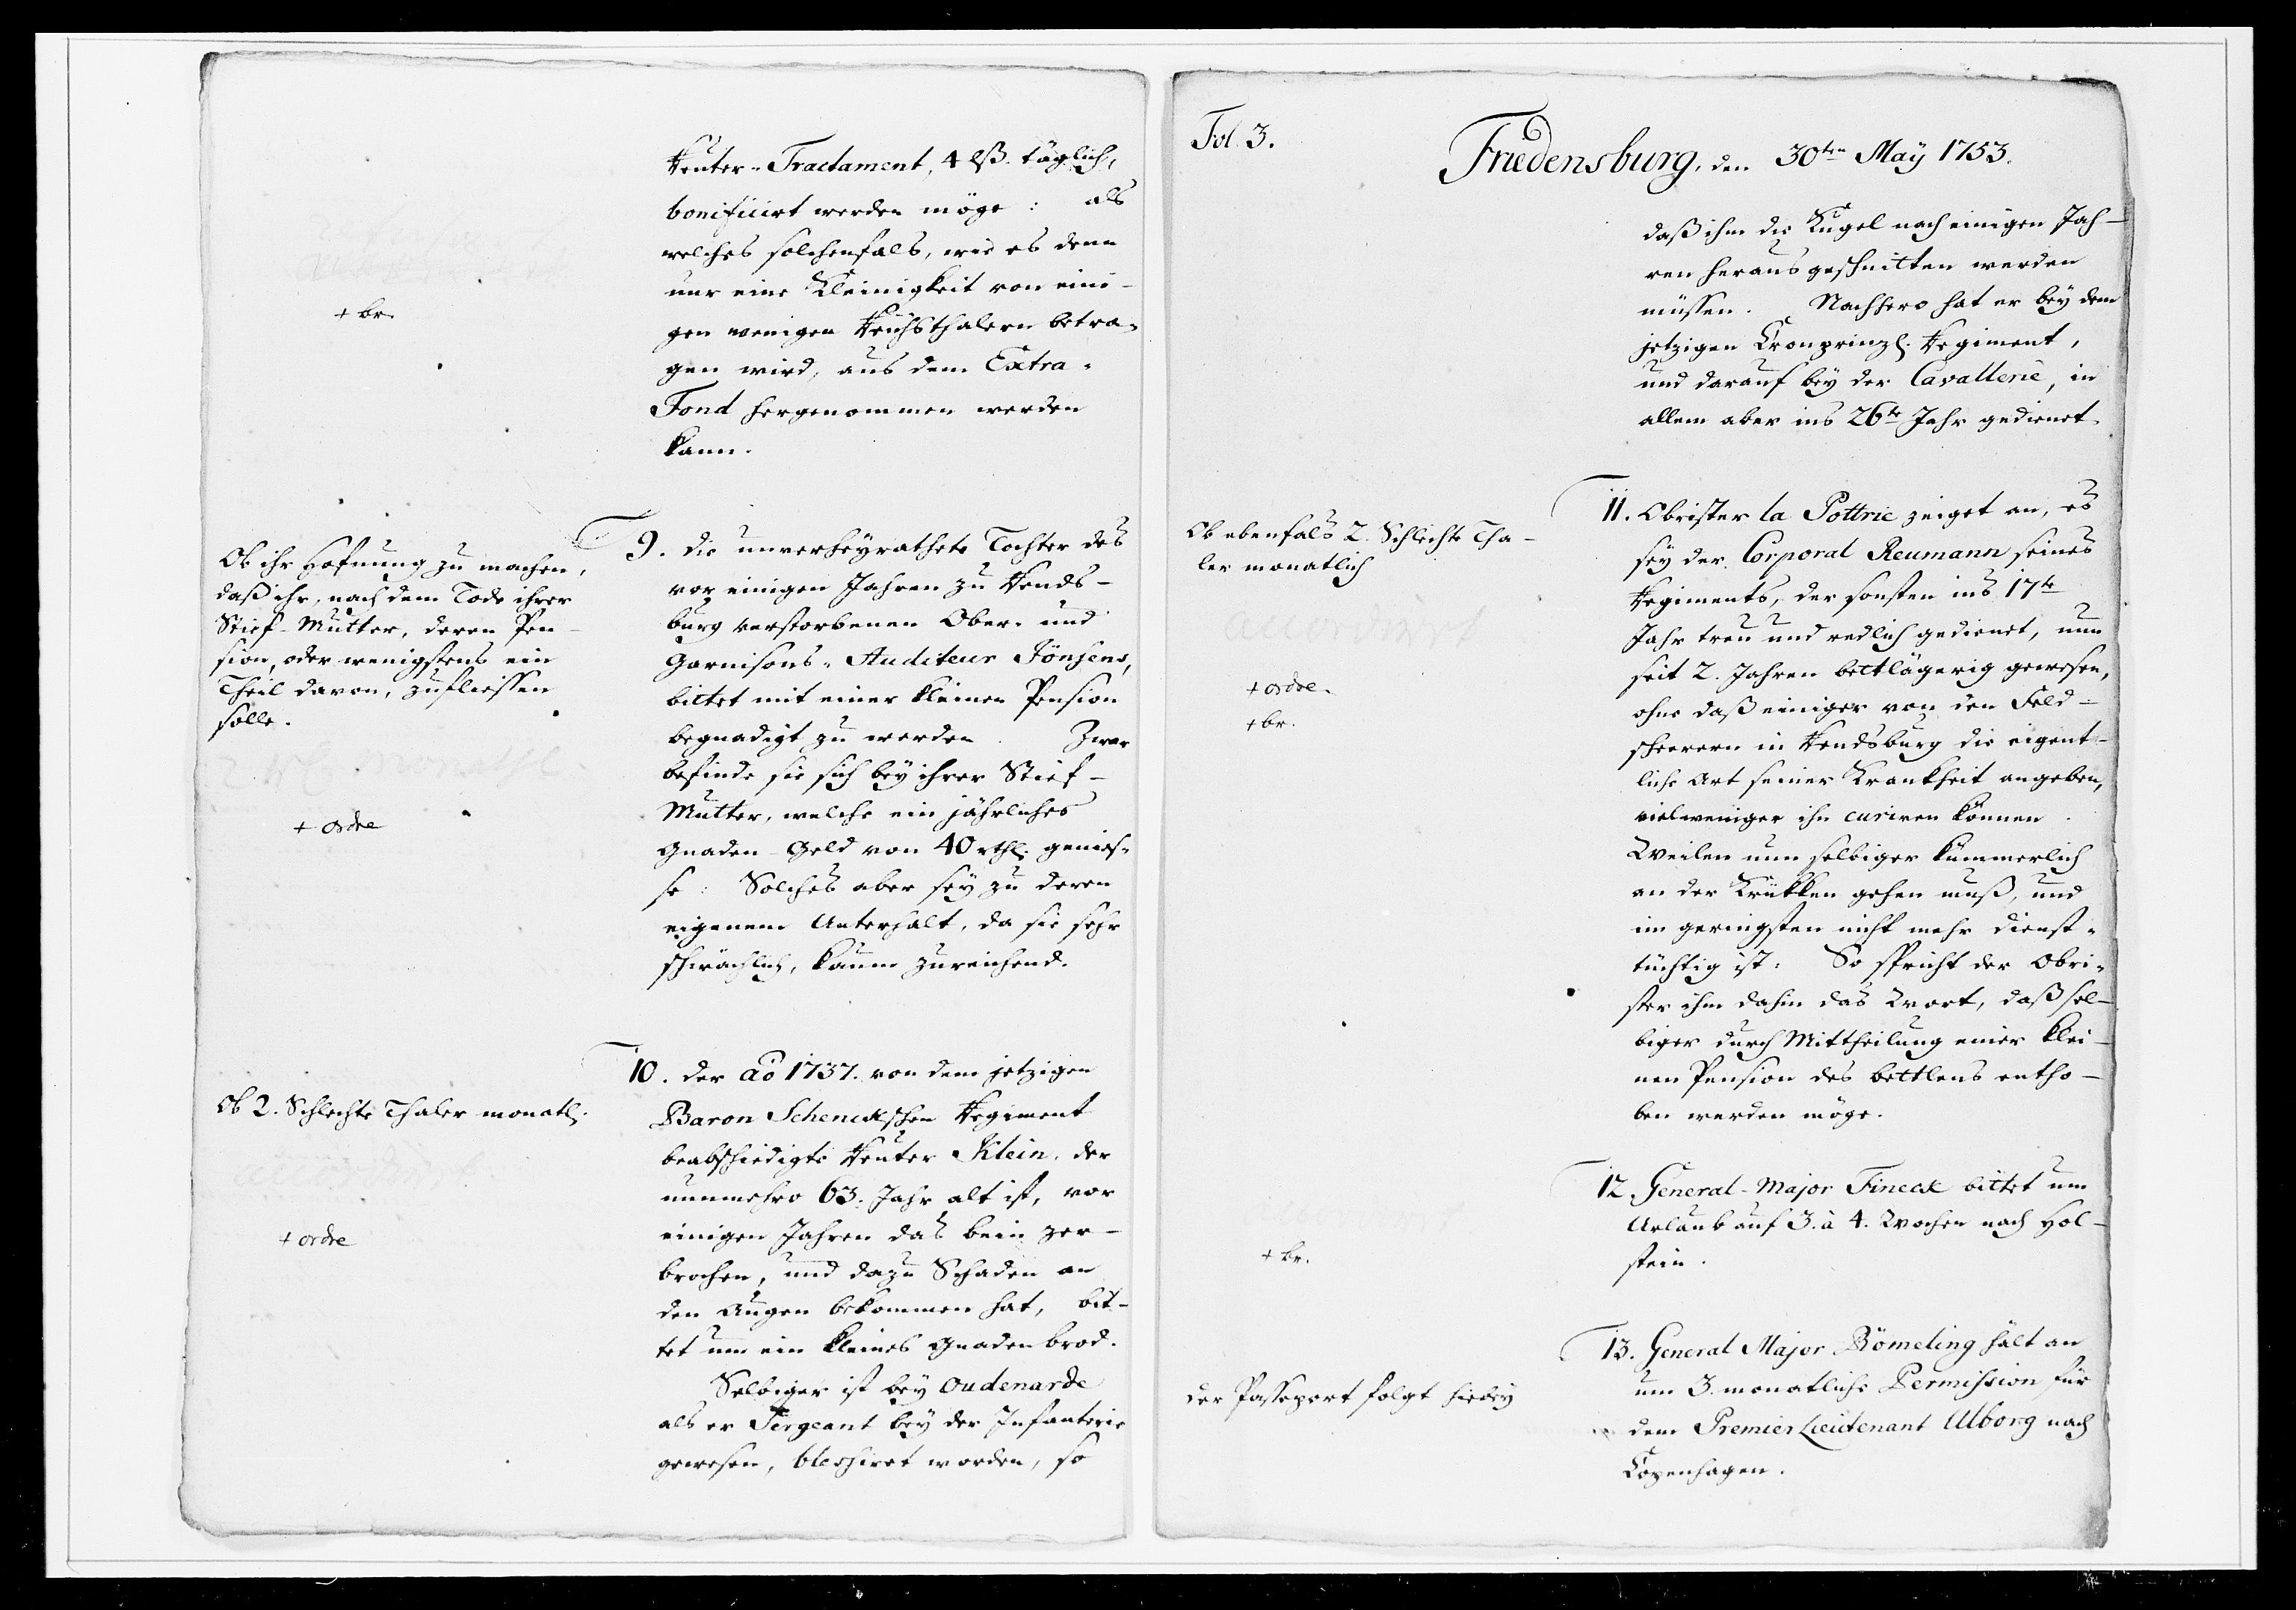 Reuter-Tractament, 4 lß. täglich,
bonificirt werden möge: als
welches solchenfals, wie es denn
nur eine Kleinigkeit von eini-
gen wenigen Reichsthalern betra-
gen wird, aus dem Extra-
Fond hergenommen werden
kann.
+ br.
9. die unverheyrathete Tochter des
vor einigen Jahren zu Rends-
burg verstorbenen Ober- und
Garnisons-Auditeur Jönsens,
bittet mit einer kleinen Pension
begnadigt zu werden. Zwar
befinde sie sich bey ihrer Stief-
Mutter, welche ein jährliches
Gnaden-Geld von 40 rthl. genies-
se: Solches aber sey zu deren
eigenem Unterhalt, da sie sehr
schwächlich, kaum zureichend.
Ob ihr Hofnung zu machen,
daß ihr, nach dem Tode ihrer
Stief-Mutter, deren Pen-
sion, oder wenigstens ein
Theil davon, zufliessen
solle.
monathl.
+ ordre
10. der aō 1737. von dem jetzigen
Baron Schenckschen Regiment
beabschiedigte Reuter Klein, der
nunmehro 63. Jahr alt ist, vor
einigen Jahren das bein zer-
brochen, und dazu Schaden an
den Augen bekommen hat, bit-
tet um ein kleines Gnadenbrod.
Selbiger ist bey Oudenarde
als er Sergeant bey der Infanterie
gewesen, blessiret worden, so
Ob 2. Schlechte Thaler monatl.
accordirt
+ ordre
Fol. 3.
Friedensburg, den 30ten Maÿ 1753.
daß ihm die Kugel nach einigen Jah-
ren heraus geschnitten werden
müssen. Nachhero hat er bey dem
jetzigen Kronprinzl. Regiment,
und darauf bey der Cavallerie, in
allem aber ins 26te Jahr gedienet.
11. Obrister la Pottrie zeiget an, es
sey der Corporal Reumann seines
Regiments, der sonsten ins 17te
Jahr treu und redlich gedienet, nun
seit 2. Jahren bettlägerig gewesen,
ohne daß einiger von den Feld-
scheerern in Rendsburg die eigent-
liche Art seiner Krankheit angeben,
vielweniger ihn curiren können.
Weilen nun selbiger kümmerlich
an der Krükken gehen muß, und
im geringsten nicht mehr dienst-
tüchtig ist: So spricht der Obri-
ster ihm dahin das Wort, daß sel-
biger durch Mittheilung einer klei-
nen Pension des bettlens entho-
ben werden möge.
Ob ebenfals 2. Schlechte Tha-
ler monatlich
accordirt
+ ordre.
+ br.
12. General-Major Finecke bittet um
Urlaub auf 3. à 4. Wochen nach Hol-
stein.
accordirt
+ br.
13. General Major Römeling hält an
um 3. monatliche Permission für
dem Premier Lieutenant Ulborg nach
Copenhagen.
der Passeport folgt hiebey